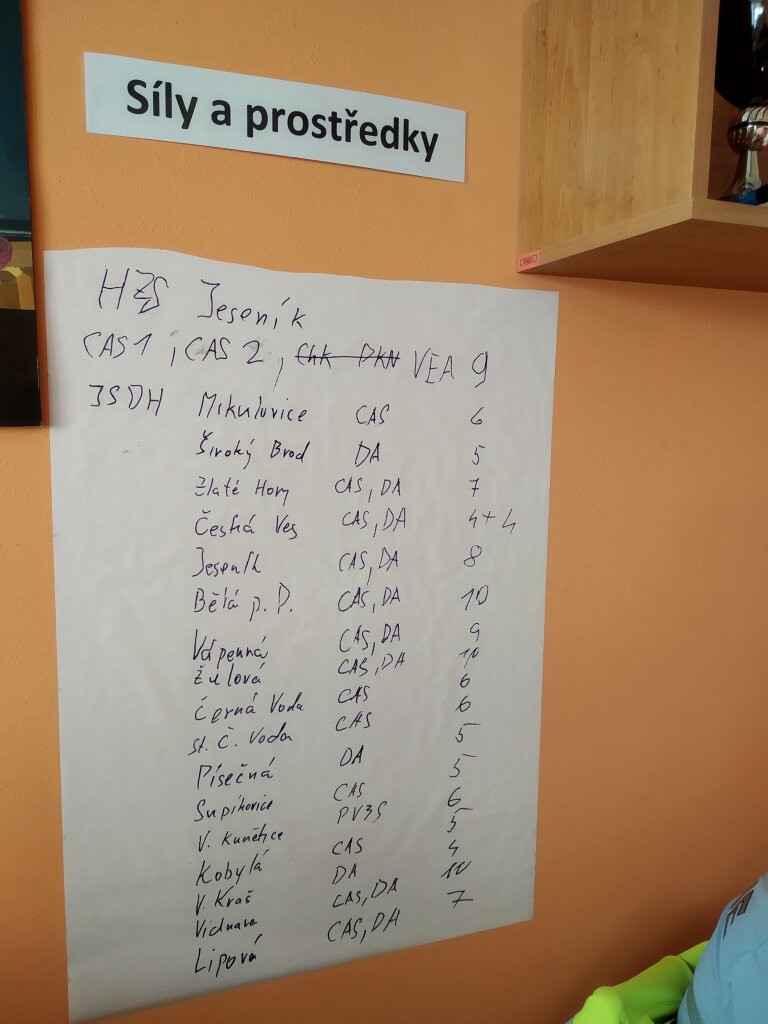 Síly a prostředky
HZS Jeseník
CAS1, CAS 2, Chk DKN VEA 9
JSDH Mikulovice CAS 6
Široký Brod DA 5
Zlaté Hory CAS, DA 7
Česká Ves CAS, DA 4+4
Jeseník CAS, DA 8
Bělá p. P. CAS, DA 10
Vápenná CAS, DA 9
Žulová CAS, DA 10
Černá Voda CAS 6
st. Č. Voda CAS 6
Písečná DA 5
Supíkovice CAS 5
V. Kunětice PV3S 6
Kobylá CAS 5
V. Kraš DA 4
Vidnava CAS, DA 10
Lipová CAS, DA 7